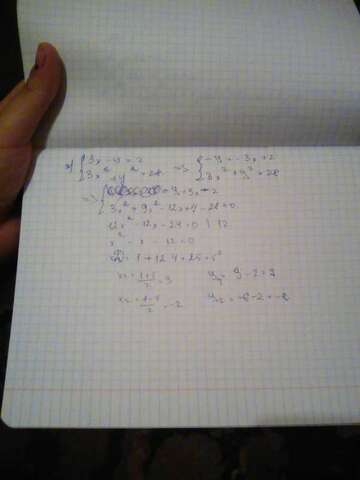 {3x - y = 2 => {-y = -3x + 2
{3x² + y² = 28 {3x² + y² = 28
=> { y = 3x - 2
{3x² + 9x² - 12x + 4 - 28 = 0
12x² - 12x - 24 = 0 | : 12
x² - x - 12 = 0
= 1 + 12·4 = 25 = 5²
x₁ = (1+5)/2 = 3 y₁ = 9 - 2 = 7
x₂ = (1-5)/2 = -2 y₂ = -6 - 2 = -8